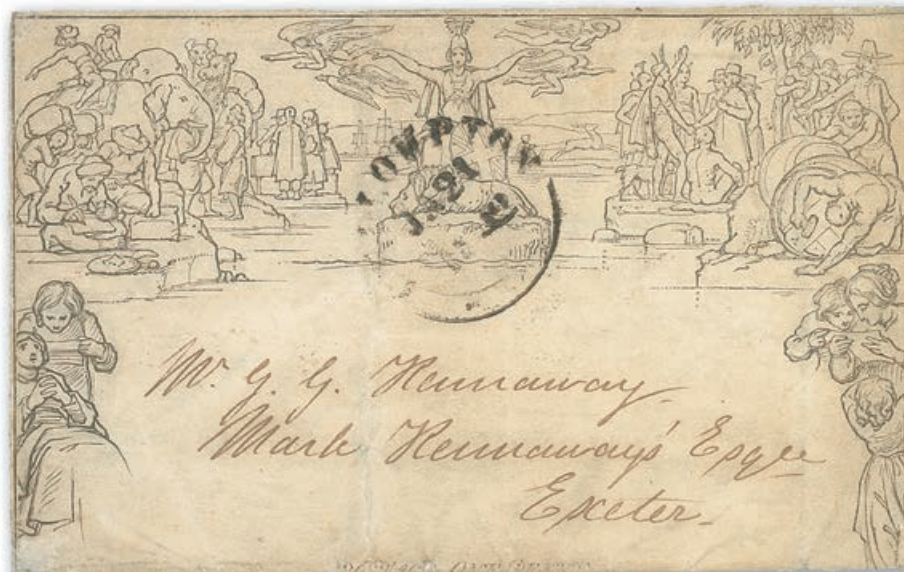 JA 21
Mr. G. G. Kennaway.
Mark Kennaways' Esqre
Exeter.